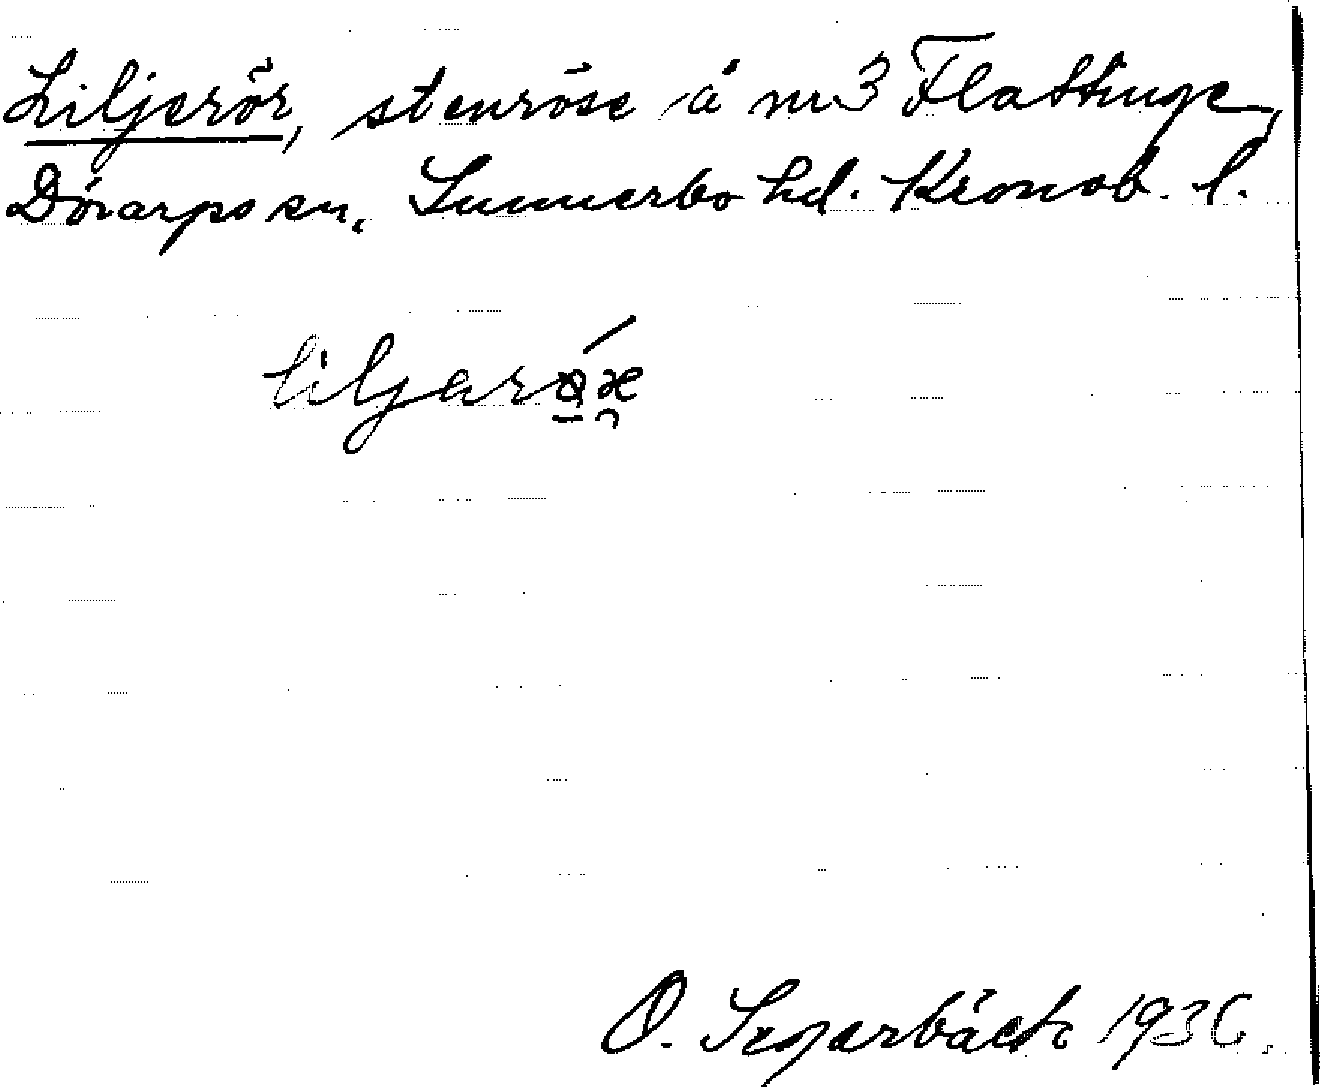 Liljerör, stenröse å nr 3 Flattinge,
Dörarps sn, Sunnerbo hd. Kronob. l.
O. Segerbäck 1936.